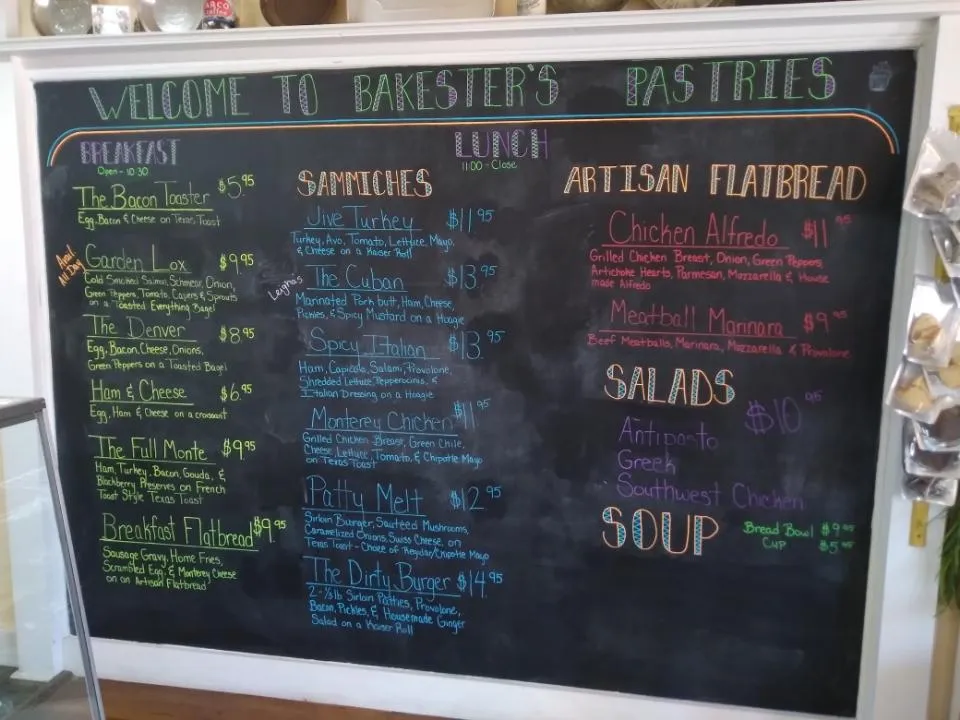 WELCOME TO BAKESTER'S PASTRIES
BREAKFAST
Open - 10:30
The Bacon Toaster $5.95
Egg, Bacon & Cheese on Texas Toast
Avail All Day
Garden Lox $9.95
Cold Smoked Salmon, Schmear, Onion,
Green Peppers, Tomato, Capers & Sprouts
on a Toasted Everything Bagel
The Denver $8.95
Egg, Bacon, Cheese, Onions,
Green Peppers on a Toasted Bagel
Ham & Cheese $6.95
Egg, Ham & Cheese on a croissant
The Full Monte $9.95
Ham, Turkey, Bacon, Gouda, &
Blackberry Preserves on French
Toast Style Texas Toast
Breakfast Flatbread $9.95
Sausage Gravy, Home Fries,
Scrambled Egg, & Monterey Cheese
on an Artisan Flatbread
LUNCH
11:00 - Close
SAMMICHES
Jive Turkey $11.95
Turkey, Avo, Tomato, Lettuce, Mayo,
& Cheese on a Kaiser Roll
The Cuban $13.95
Marinated Pork butt, Ham, Cheese,
Pickles, & Spicy Mustard on a Hoagie
Spicy Italian $13.95
Ham, Capicola, Salami, Provolone,
Shredded Lettuce, Pepperocinis, &
Italian Dressing on a Hoagie
Monterey Chicken $11.95
Grilled Chicken Breast, Green Chile,
Cheese, Lettuce, Tomato, & Chipotle Mayo
on Texas Toast
Patty Melt $12.95
Sirloin Burger, Sauteed Mushrooms,
Caramelized Onions, Swiss Cheese, on
Texas Toast - Choice of Regular/Chipotle Mayo
The Dirty Burger $14.95
2 - ⅓ lb Sirloin Patties, Provolone,
Bacon, Pickles, & Housemade Ginger
Salad on a Kaiser Roll
ARTISAN FLATBREAD
Chicken Alfredo $11.95
Grilled Chicken Breast, Onion, Green Peppers,
Artichoke Hearts, Parmesan, Mozzarella & House
made Alfredo
Meatball Marinara $9.95
Beef Meatballs, Marinara, Mozzarella & Provolone
SALADS $10.95
Antipasto
Greek
Southwest Chicken
SOUP
Bread Bowl $9.95
Cup $5.95